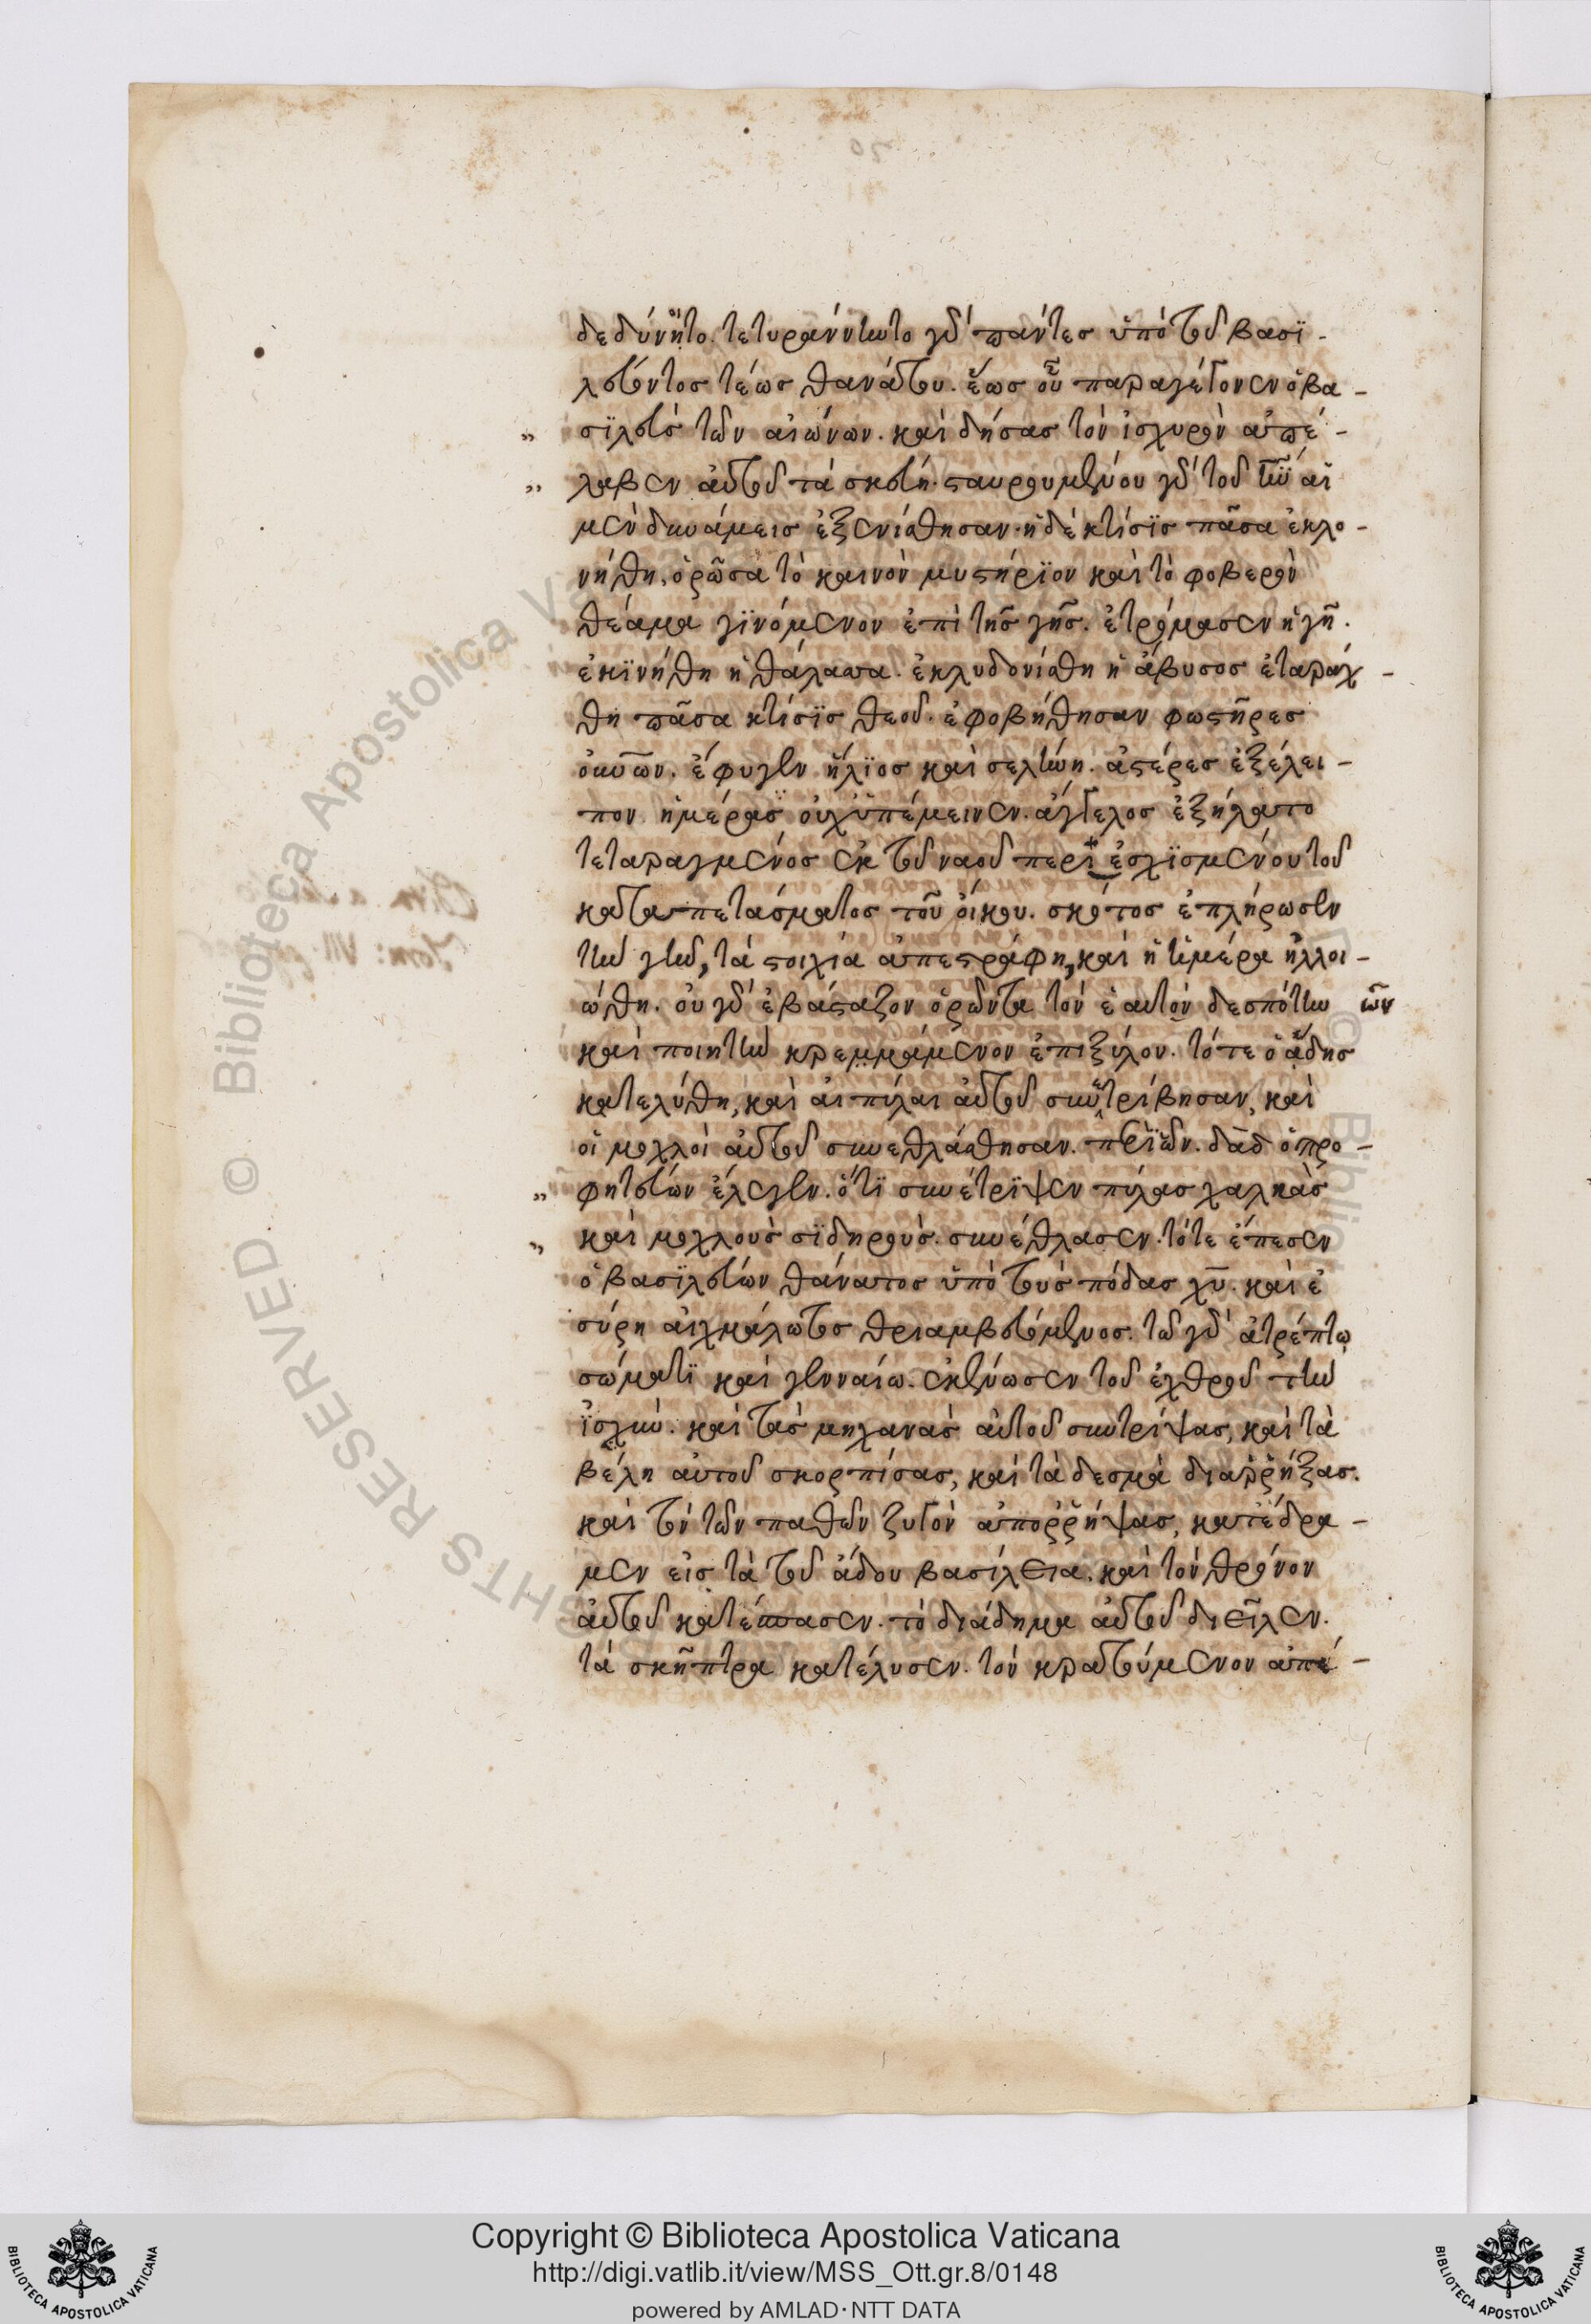 δεδύνητο. τετυράννηντο γὰρ πάντες ὑπὸ τοῦ βασϊ -
λεύοντος τέως θανάτου. ἕως οὗ παραγέγονεν ὁ βα -
„ σϊλεὺς τῶν αἰώνων. καὶ δήσας τὸν ἰσχυρὸν ἀπέ -
„ λαβεν αὐτοῦ τὰ σκεύη. σταυρουμένου γὰρ τοῦ ιυ αἱ
μὲν δυνάμεις ἐξενίσθησαν. ἡ δὲ κτίσϊς πᾶσα ἐκλο -
νήθη, ὁρῶσα τὸ καινὸν μυστήρϊον καὶ τὸ φοβερὸν
θέαμα γϊνόμενον ἐπὶ τῆς γῆς. ἐτρόμασεν ἡ γῆ.
ἐκϊνήθη ἡ θάλασσα. ἐκλυδονίσθη ἡ ἄβυσος ἐταράχ -
θη πᾶσα κτίσϊς θεοῦ. ἐφοβήθησαν φωστῆρες
οὐνων. ἔφυγεν ἥλϊος καὶ σελήνη. ἀστέρες ἐξέλει -
πον ἡμέρας οὐχ ὑπέμεινεν. ἄγγελος ἐξήλατο
τεταραγμένος ἐκ τοῦ ναοῦ περὶ ἐσχϊσμένου τοῦ
καταπετάσματος τοῦ οἴκου. σκότος ἐπλήρωσεν
τὴν γῆν, τὰ στοιχία ἀπεστράφη, καὶ ἡ ἡμέρα ἠλλοι -
ώθη. οὐ γὰρ ἐβάσταζον ὁρῶντα τὸν ἑαυτὸν δεσπότην ῶν
καὶ ποιητὴν κρεμμάμενον ἐπι ξύλου. τότε ὁ ἅδης
κατελύθη, καὶ αἱ πύλαι αὐτοῦ συνετρίβησαν, καὶ
οἱ μοχλοὶ αὐτοῦ συνεθλάσθησαν. περὶ ὧν. δαδ ὁ προ -
„ φητεύων ἔλεγεν. ὅτϊ συνέτρϊψεν πύλας χαλκὰς
„ καὶ μοχλοὺς σϊδηροὺς συνέθλασεν. τότε ἔπεσεν
ὁ βασϊλεύων θάνατος ὑπὸ τοὺς πόδας χυ. καὶ ἐ
σύρη αἰχμάλωτος θριαμβευόμενος. τῶ γὰρ ἀτρέπτῳ
σώματϊ καὶ γενναίω. ἐκένωσεν τοῦ ἐχθροῦ τὴν
ἰσχὺν. καὶ τὰς μηχανὰς αὐτοῦ συντρίψας, καὶ τὰ
βέλη αὐτοῦ σκορπίσας, καὶ τὰ δεσμὰ διαῤῥήξας.
καὶ τὸν τῶν παθῶν ζυγὸν ἀποῤῥήψας, κατέδρα -
μεν εἰς τὰ τοῦ ἅδου βασίλεια. καὶ τὸν θρόνον
αὐτοῦ κατέσπασεν. τὸ διάδημα αὐτοῦ διεῖλεν.
τὰ σκῆπτρα κατέλυσεν. τὸν κρατούμενον ἀπέ -